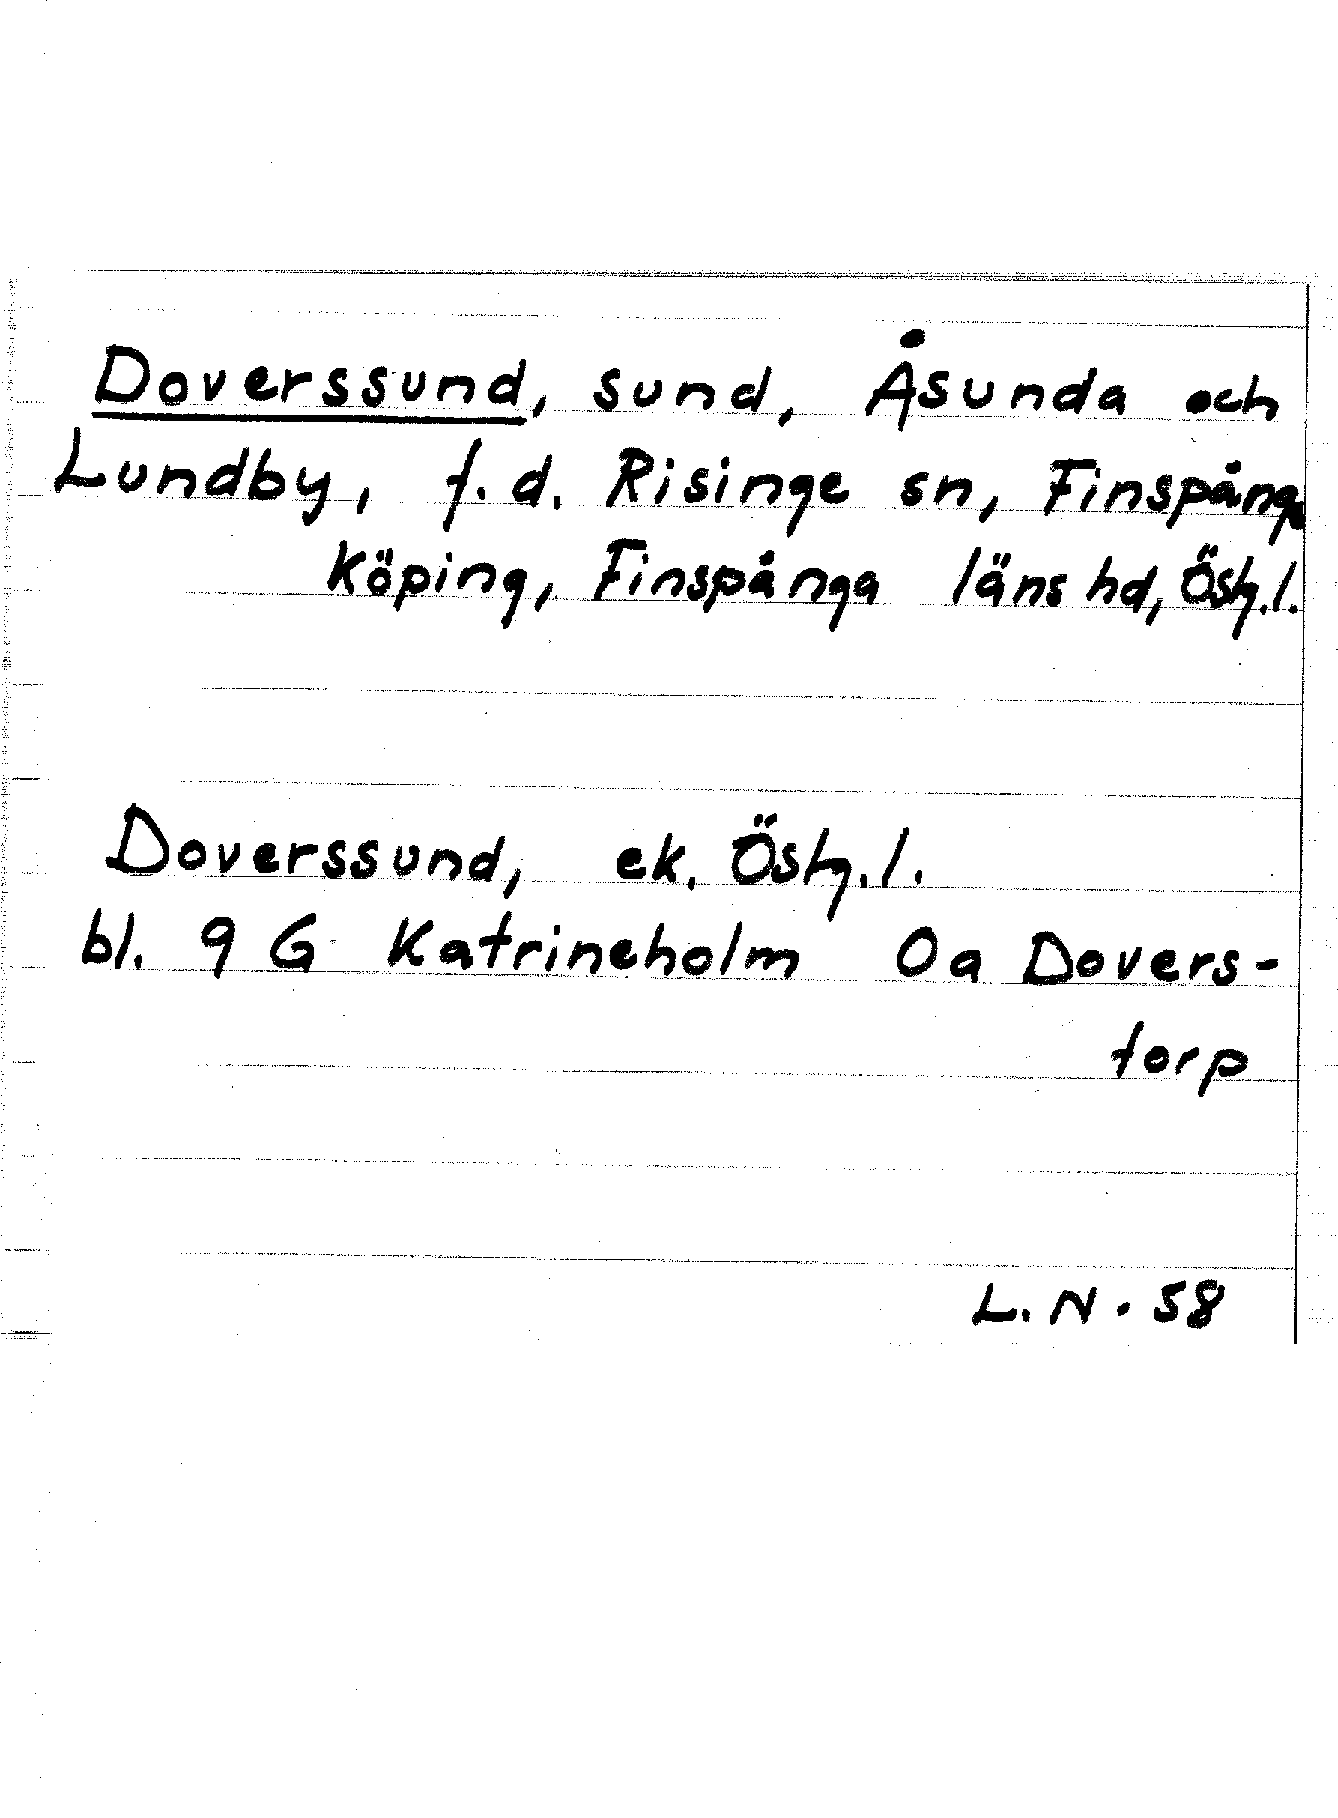 Doverssund, sund, Åsunda och
Lundby, f.d. Risinge sn, Finspång
köping, Finspånga läns hd, Östg.l.
Doverssund, ek. Östg.l.
bl. 9 G Katrineholm 0a Dovers-
torp
L.N. 58